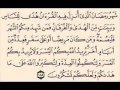 شَهْرُ رَمَضَانَ الَّذِي أُنزِلَ فِيهِ الْقُرْءَانُ هُدًى لِلنَّاسِ
وَبَيِّنَاتٍ مِنَ الْهُدَى وَالْفُرْقَانِ فَمَن شَهِدَ مِنكُمُ الشَّهْرَ
فَلْيَصُمْهُ وَمَن كَانَ مَرِيضًا أَوْ عَلَى سَفَرٍ فَعِدَّةٌ مِنْ
أَيَّامٍ أُخَرَ يُرِيدُ اللَّهُ بِكُمُ الْيُسْرَ وَلَا يُرِيدُ بِكُمُ
الْعُسْرَ وَلِتُكْمِلُوا الْعِدَّةَ وَلِتُكَبِّرُوا اللَّهَ عَلَى مَا
هَدَاكُمْ وَلَعَلَّكُمْ تَشْكُرُونَ